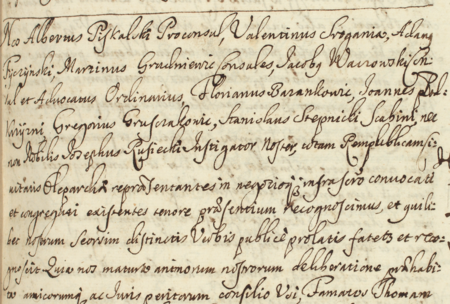 Nos Albertus Piskalski Proconsul, Valentinus Srogania, Adam
Marzinus Grudniewic Consules, Jacob9 Wacrowski
et Advocatus Ordinarius, Florianus Barankowic, Joannes
Gregorius Gruszakowic, Stanislaus Stepnicki Scabini, nec
non Nobilis Josephus Rusiecki Instigator Noster totam Rempublicam
repræsentantes in negotio infrascro convocati
et congregati existentes tenore præsentium recognoscimus, et quili
bet nostrum seorsim distinctis Verbis publicè prolatis fatetr et reco
gnoscit Quia nos maturâ animorum nostrorum deliberatione præhabi
amicorumq ac Juris peritorum consilio Usi, Famatos Thomam